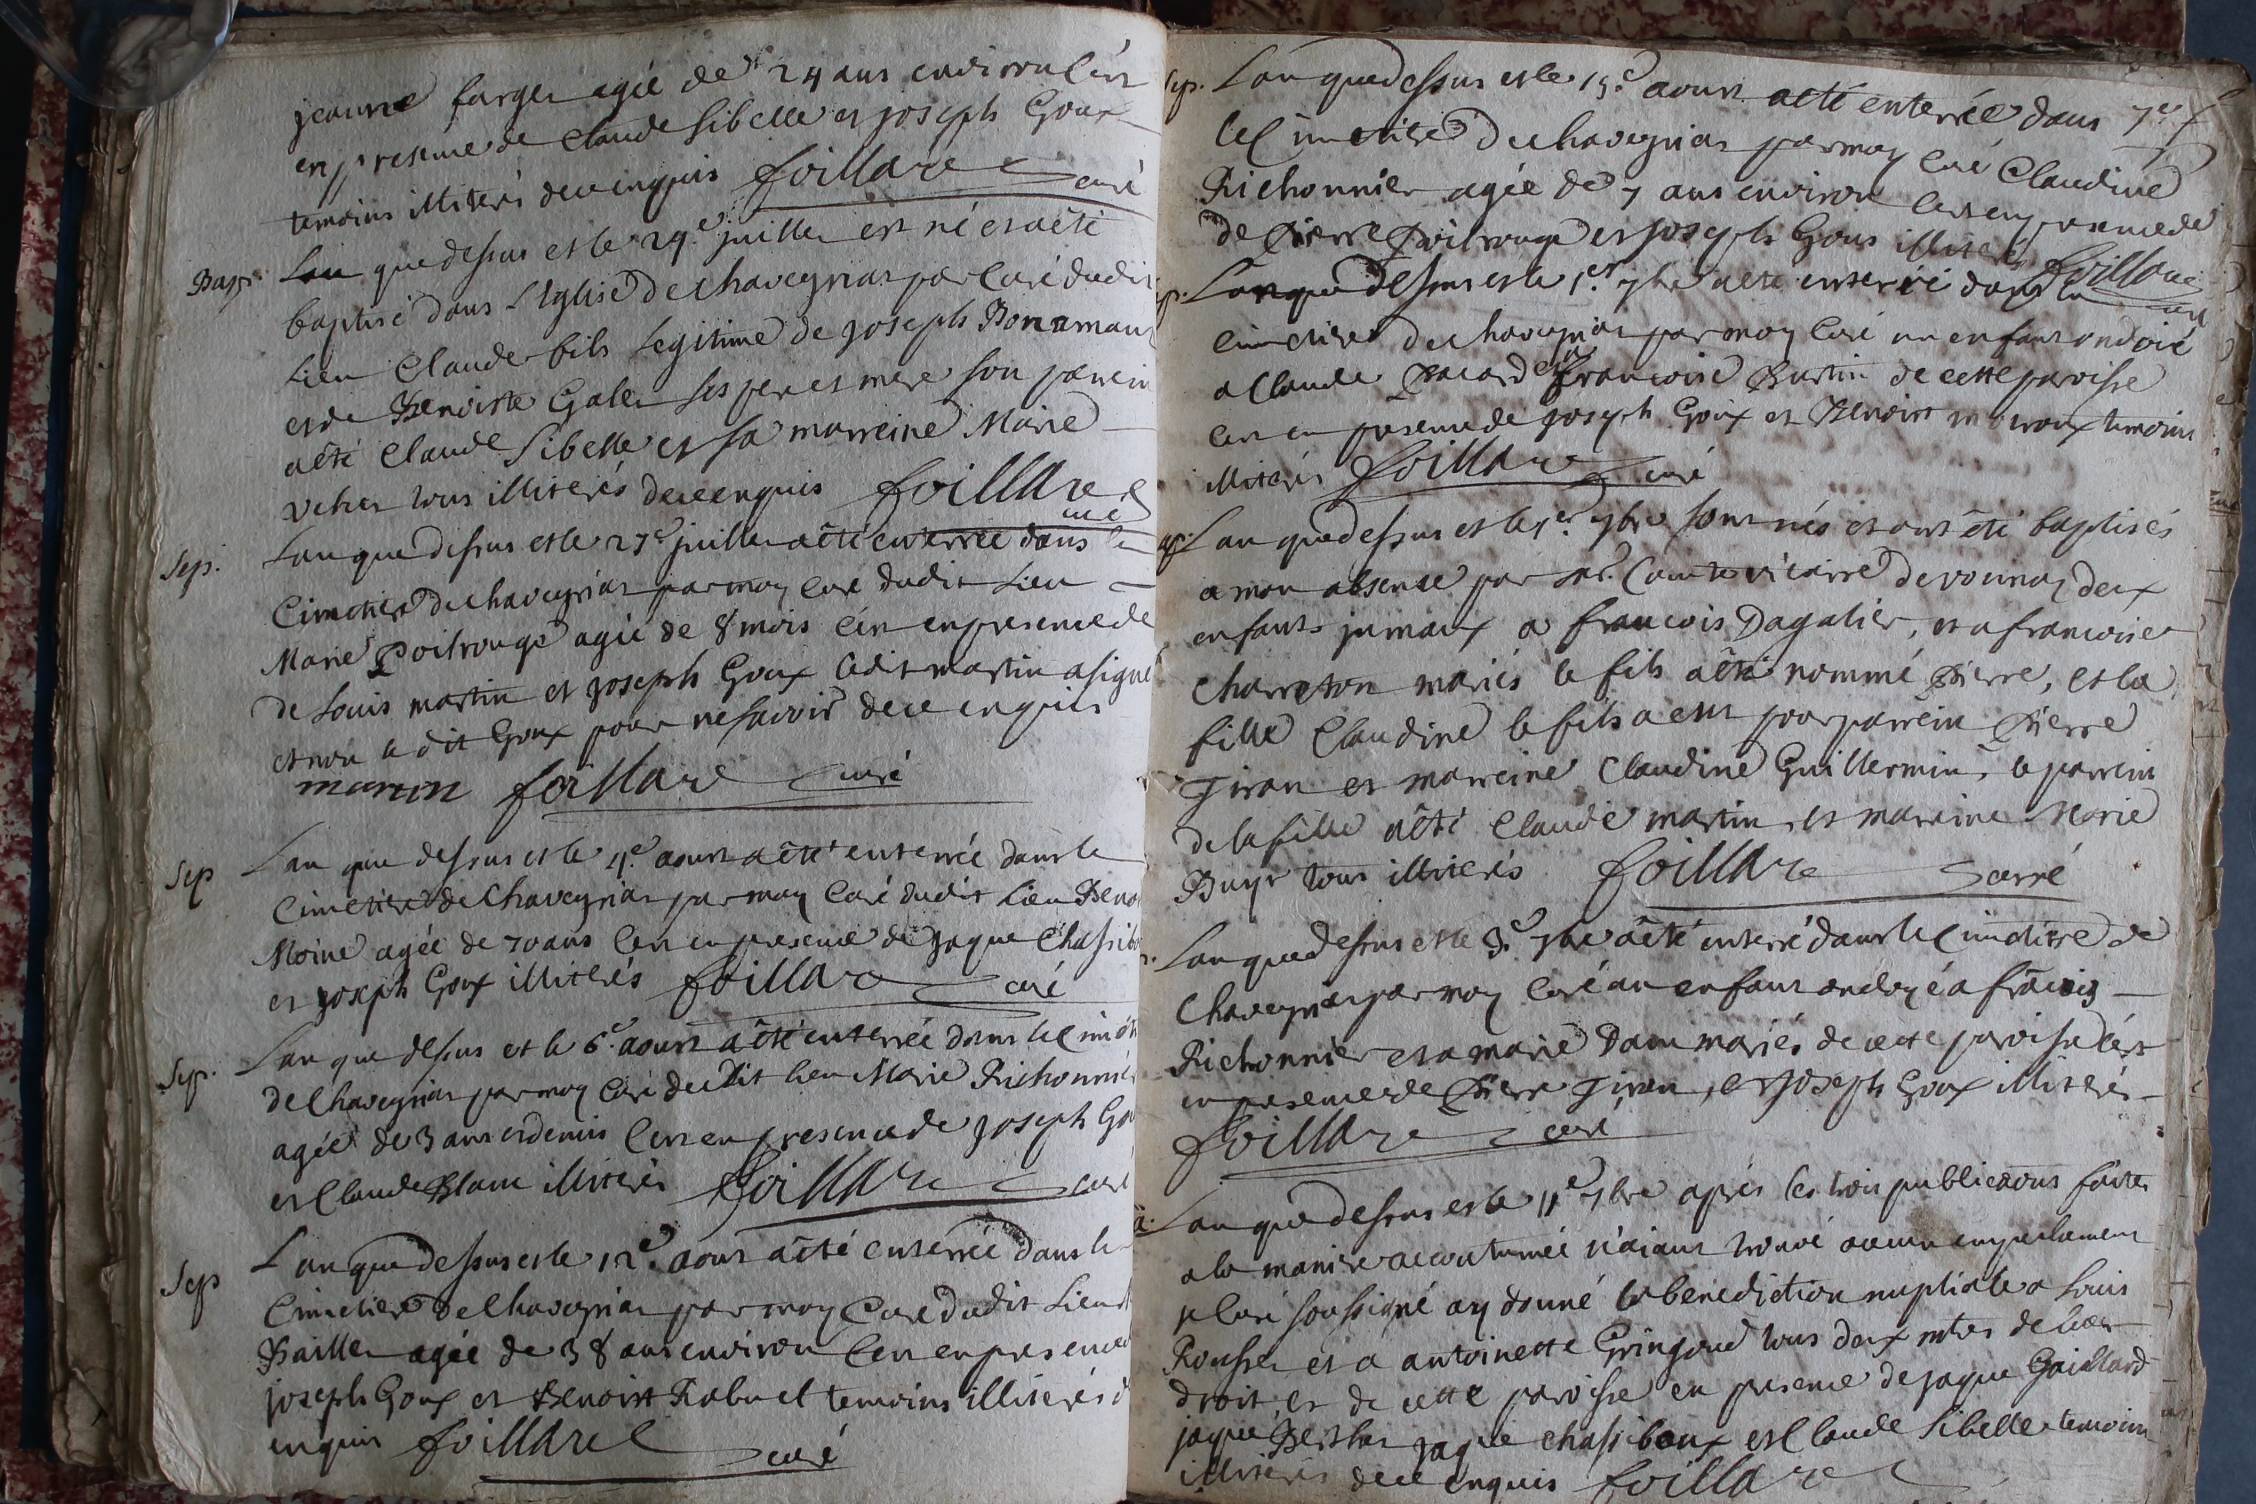 jeanne farger agée de 24 ans environ cest
en presence de Claude Sibelle et joseph Goux
temoins illiterés de ce enquis foillare curé
Bapt. Lan que dessus et le 24e juillet est né et a êté
baptisé dans L'Eglise de chaveyriat par Curé dudit
Lieu Claude fils Legitime de joseph Bonamour
et de Benoiste Galer ses pere et mere son parrein
a êté Claude Sibelle et sa marreine Marie
vecher tous illiterés de ce enquis foillare curé
Sep. Lan que dessus et le 27e juillet a êté enterrée dans le
Cimetiere de chaveyriat par moy Curé dudit Lieu
Marie Poilrouge agée de 8 mois cest en presence de
de Louis martin et joseph Goux ledit martin a signé
et non le dit Goux pour ne savoir de ce enquis
martin foillare curé
Sep Lan que dessus et le 4e aoust a êté enterrée dans le
Cimetiere de chaveyriat par moy Curé dudit Lieu Beno
Moine agée de 70 ans cest en presence de jaque Chassibo
et joseph Goux illiterés foillare curé
Sep. Lan que dessus et le 6e aoust a êté enterrée dans le Cimeti
de Chaveyriat par moy Curé dudit lieu Marie Richonnier
agée de 3 ans et demis cest en presence de joseph Gou
et Claude Blanc illiterés foillare curé
Sep Lan que dessus et le 12e aoust a êté enterrée dans le
Cimetiere de Chaveyriat par moy Curé dudit Lieu
Bailler agée de 38 ans environ cest en presence
joseph Goux et Benoist Rabuel temoins illiterés d
enquis foillare curé
Sep. Lan que dessus et le 15e aoust a êté enterrée dans 7e
le Cimetiere de chaveyriat par moy Curé Claudine
Richonnier agée de 7 ans environ cest en presence de
de Pierre Poilrouge et joseph Goux illiterés foillare curé
Lan que dessus et le 1er 7bre a êté enterré dans le
cimetiere de chaveyriat par moy Curé un enfant ondoié
a Claude Pacard et a francoise Burtin de cette paroisse
cest en presence de joseph Goux et Benoist moiroux temoins
illiterés foillare curé
Lan que dessus et le 1er 7bre sont nés et ont êté baptisés
a mon absence par mr. Comte vicaire de vonnas deux
enfants jumaux a francois Dagalier, et a francoise
Charreton mariés le fils a êté nommé Pierre, et la
fille Claudine le fils a eut pour parrein Pierre
Tiran et marreine Claudine Guillermin, le parrein
de la fille a êté Claude martin, et marreine Marie
Buyr tous illiterés foillare curé
Lan que dessus et le 3e 7bre a êté enterré dans le Cimetiere de
Chaveyriat par moy Curé un enfant ondoyé a francois
Richonnier et a marie Dam mariés de cette paroisse cest
en presence de Pierre Tiran, et joseph Goux illiterés
foillare curé
Lan que dessus et le 11e 7bre aprés les trois publications faites
a la maniere accoutumée n'aiant trouvé aucun empechement
je Curé soussigné ay donné la benediction nuptiale a Louis
Rousset et a antoinette Gringoud tous deux mtres de leur
droit, et de cette paroisse en presence de jaque Gaillard
jaque Berthet jaque chassiboux et Claude Sibelle temoins
illiterés de ce enquis foillare